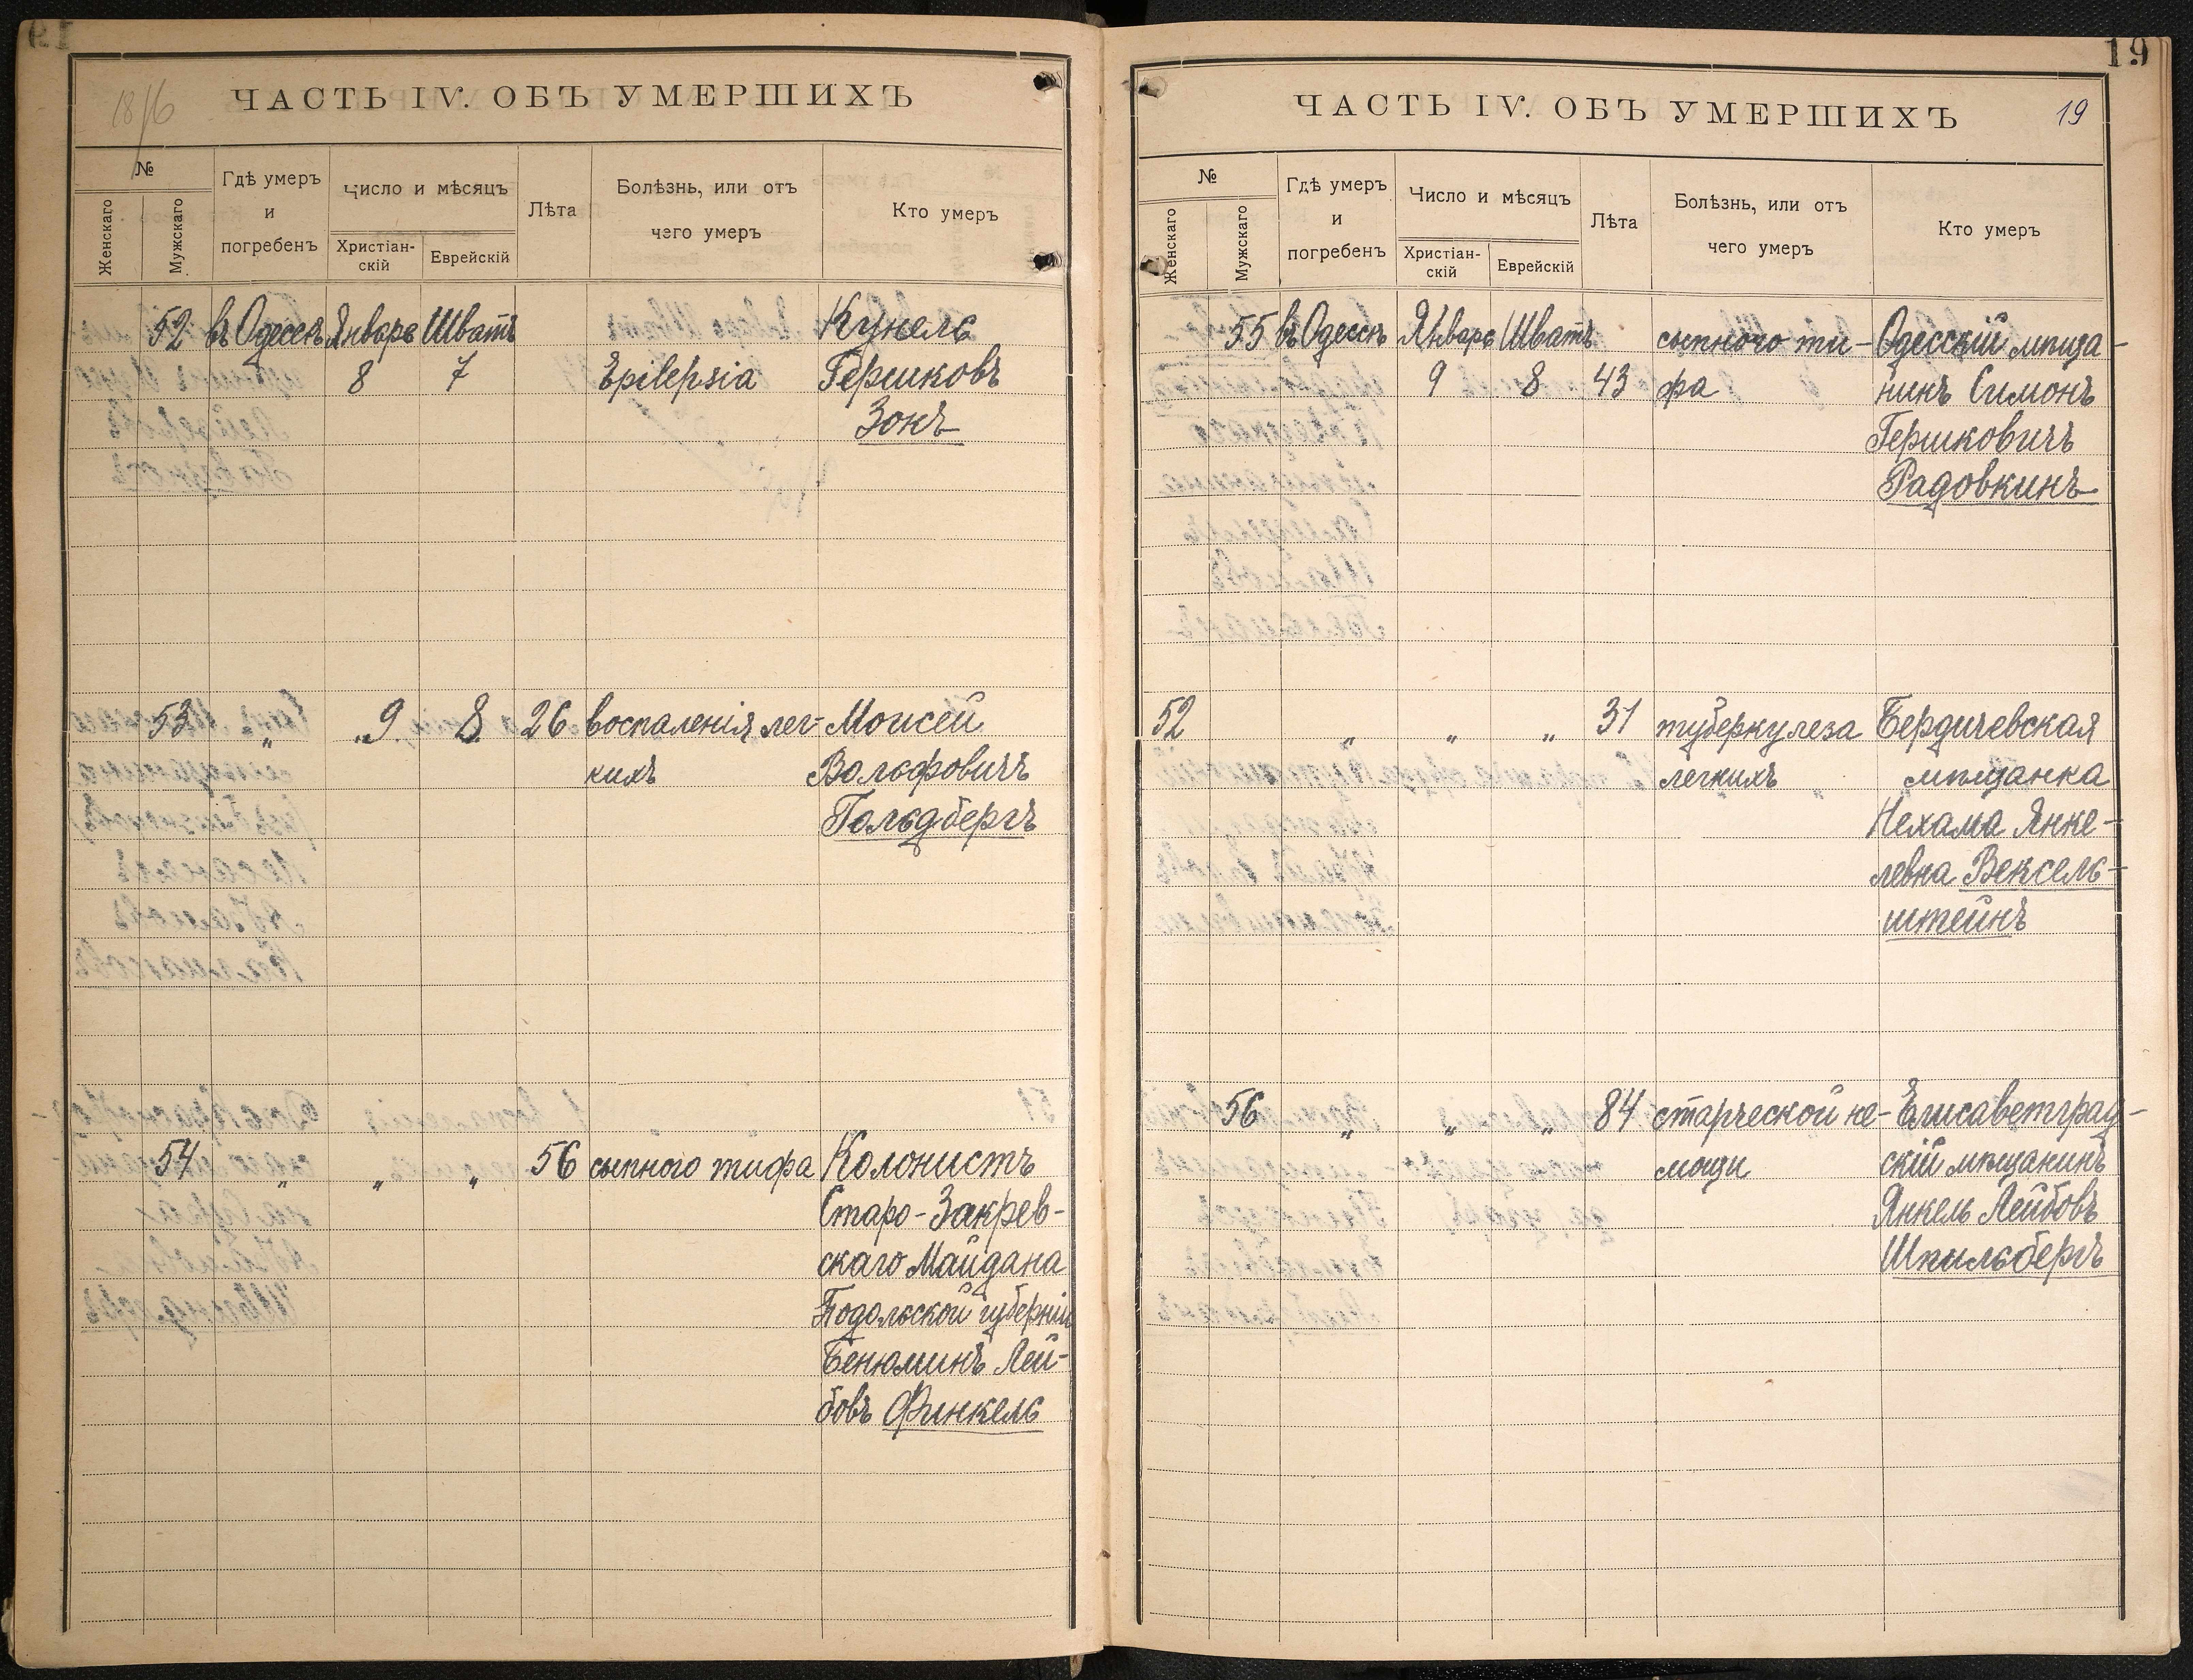 19
ЧАСТЬ IV. ОБЪ УМЕРШИХЪ
№
Женскаго
Мужскаго
Гдѣ умеръ
и
погребенъ
Число и мѣсяцъ
Христіан-
скій
Еврейскій
Лѣта
Болѣзнь, или отъ
чего умеръ
Кто умеръ
52 въ Одессѣ Январь Шватъ Кунель
8 7 Epilepsia Гершковъ
Зонъ
53 " " 9 8 26 воспаленія лег- Моисей
кихъ Вольфовичъ
Гольдбергъ
54 " " " 56 сыпного тифа Колонистъ
Старо-Закрев-
скаго Майдана
Подольской губерніи
Бенюминъ Лей-
бовъ Финкель
19
ЧАСТЬ IV. ОБЪ УМЕРШИХЪ 19
№
Женскаго
Мужскаго
Гдѣ умеръ
и
погребенъ
Число и мѣсяцъ
Христіан-
скій
Еврейскій
Лѣта
Болѣзнь, или отъ
чего умеръ
Кто умеръ
55 въ Одессѣ Январь Шватъ сыпного ти- Одесскій мѣща-
9 8 43 фа нинъ Симонъ
Гершковичъ
Радовкинъ
52 " " " 31 туберкулеза Бердичевская
легкихъ мѣщанка
Нехама Янке-
левна Вексель-
штейнъ
56 " " " 84 старческой не- Елисаветград-
мощи скій мѣщанинъ
Янкель Лейбовъ
Шпильбергъ